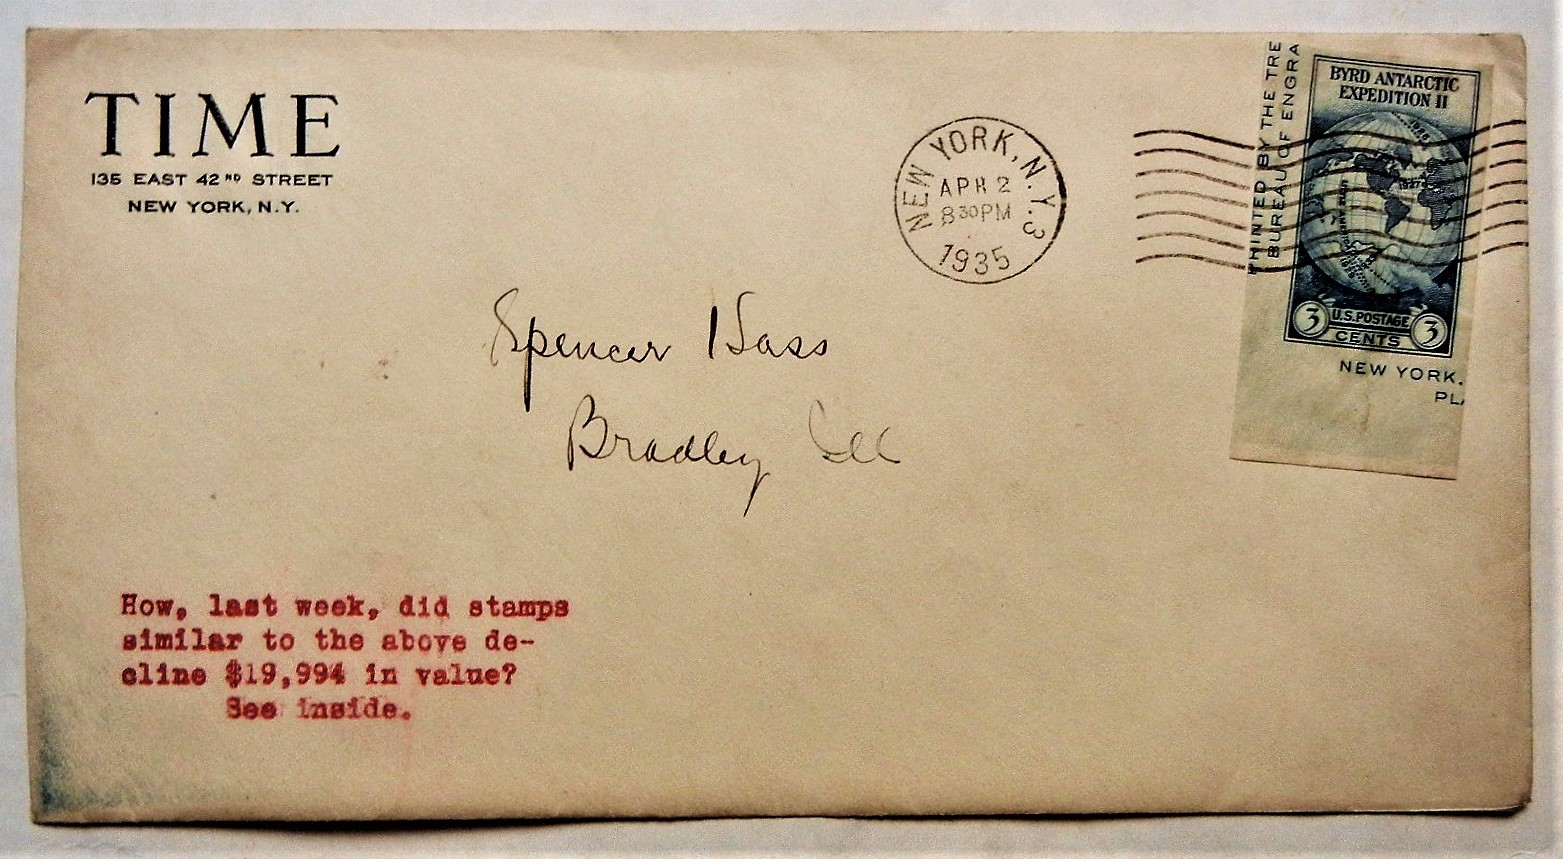 TIME
135 EAST 42ND STREET
NEW YORK, N.Y.
NEW YORK, N.Y. 3
APR 2
830PM
1935
PRINTED BY THE TRE
BUREAU OF ENGRA
BYRD ANTARCTIC
EXPEDITION II
3 U.S. POSTAGE 3
CENTS
NEW YORK.
PL
Spencer Hass
Bradley Ill
How, last week, did stamps
similar to the above de-
cline $19,994 in value?
See inside.